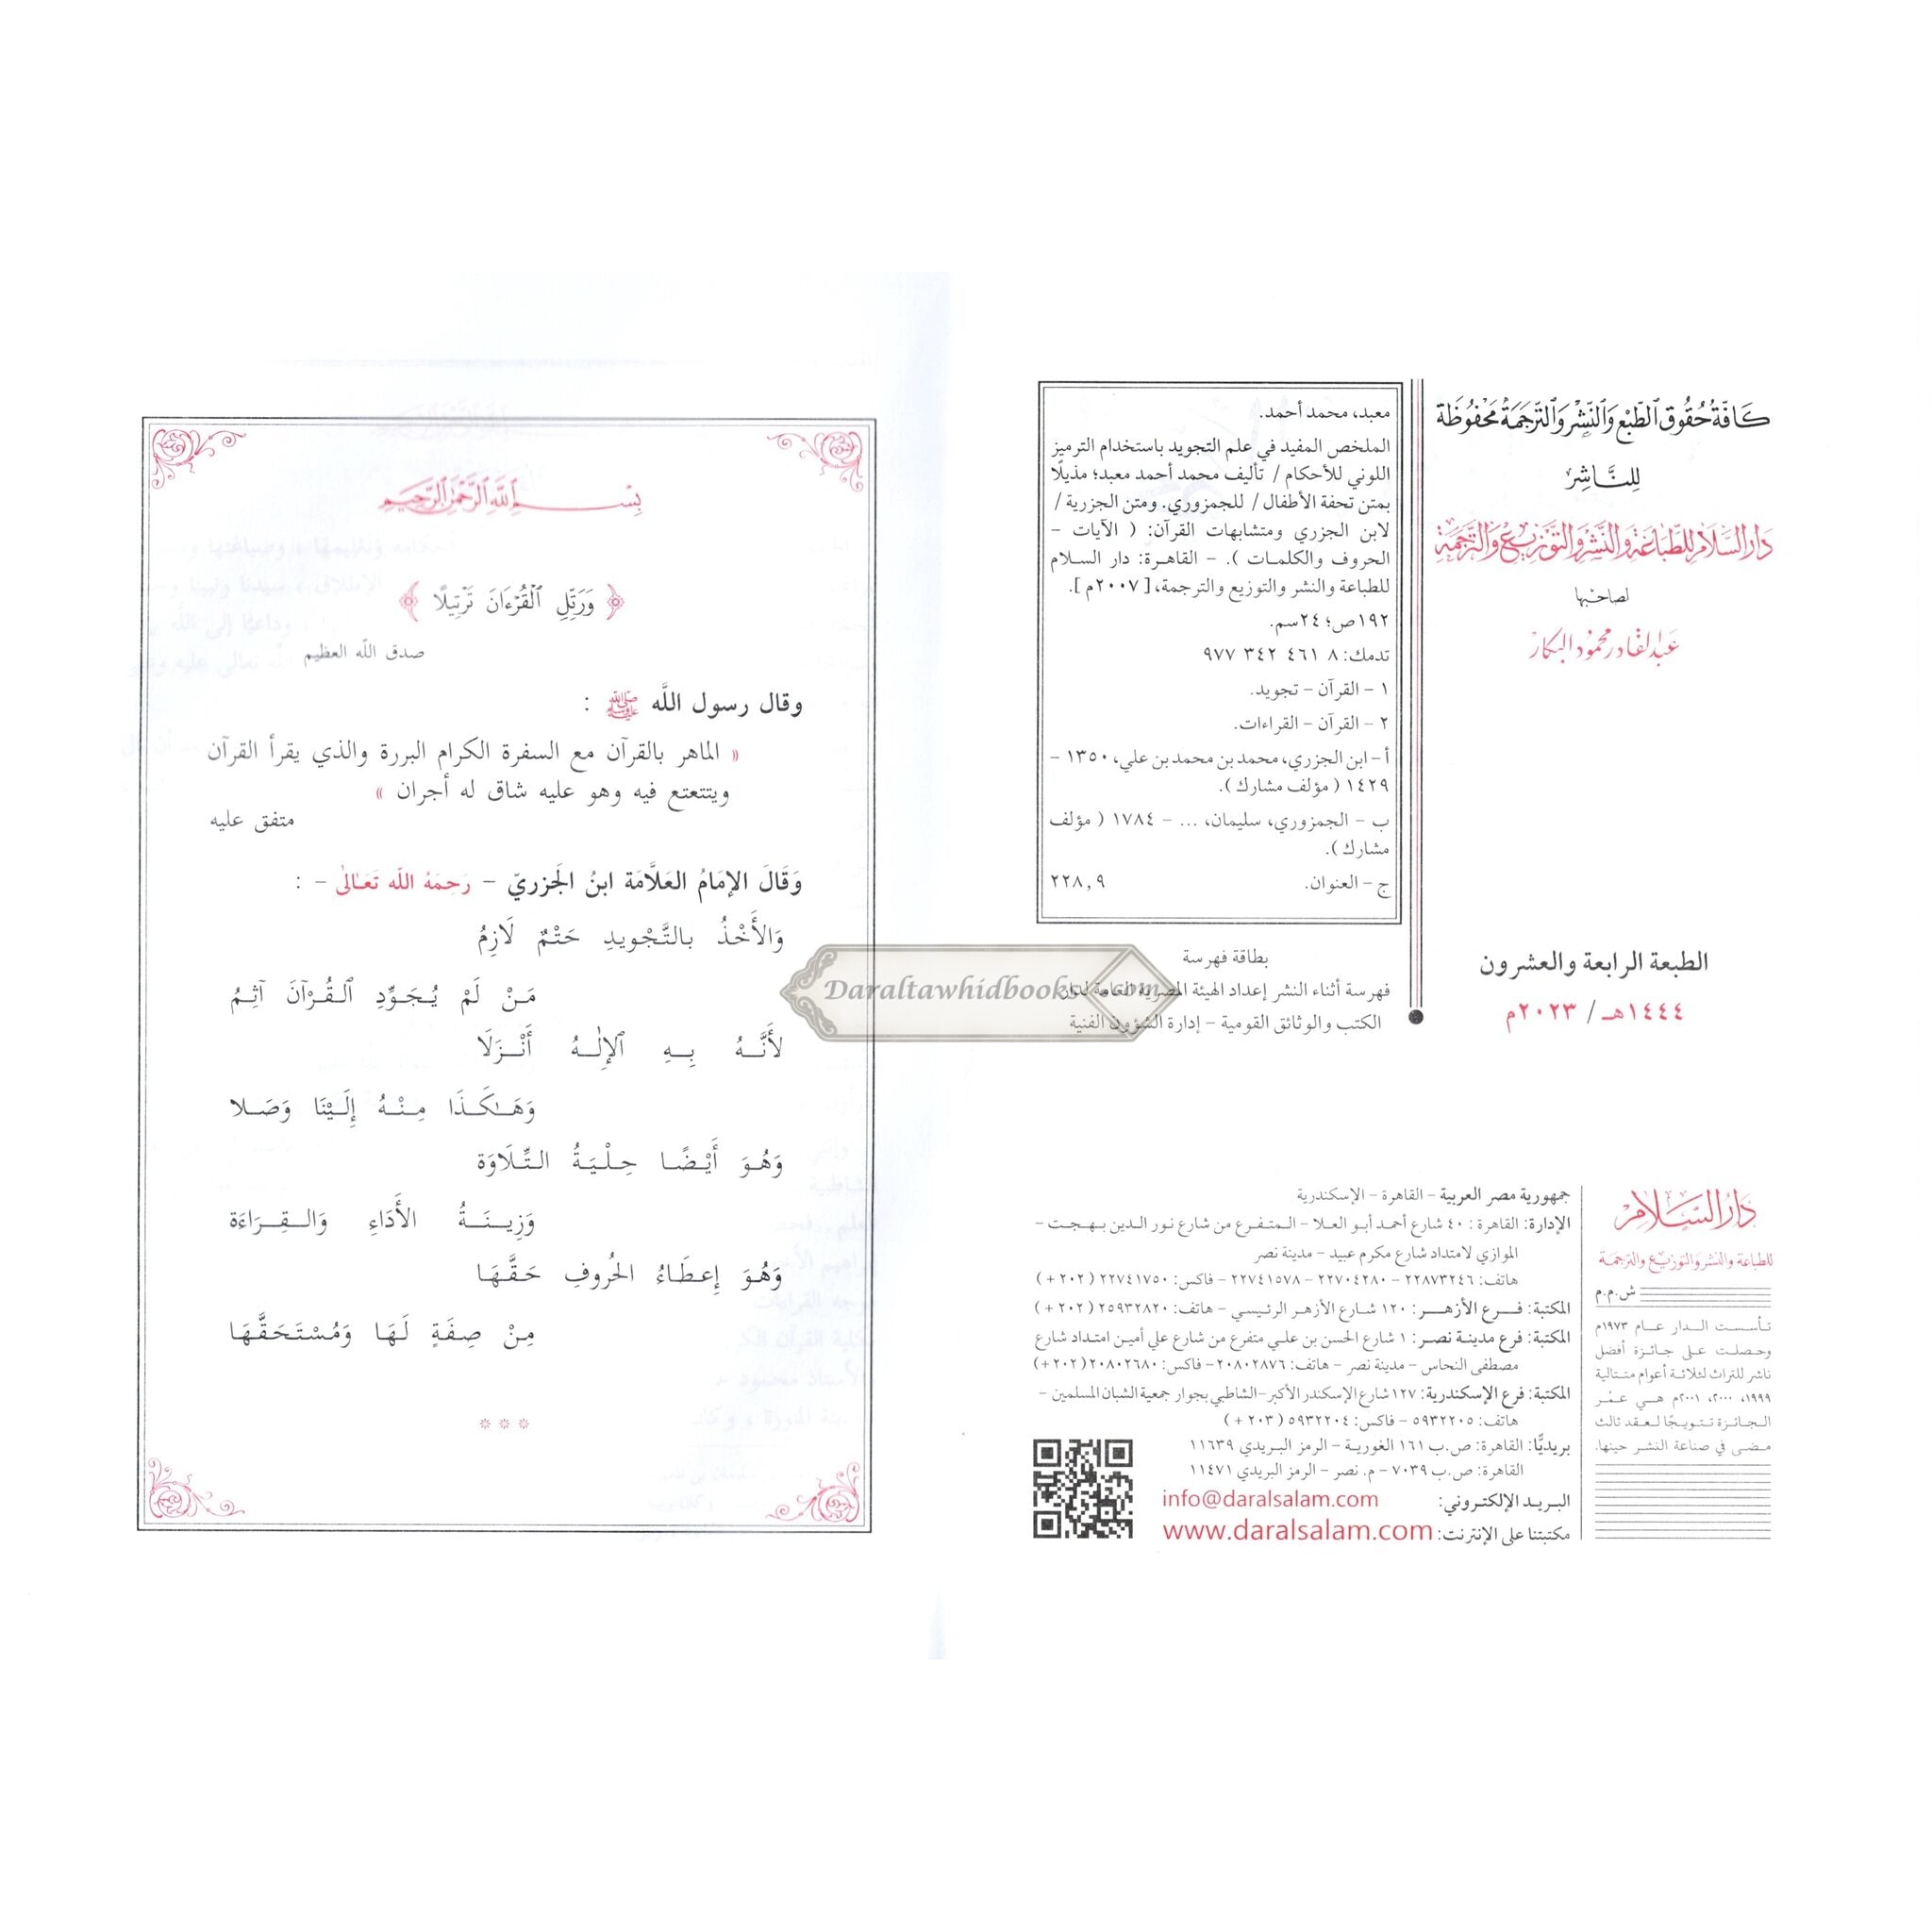 كافة حقوق الطبع والنشر والترجمة محفوظة
للناشر
دار السلام للطباعة والنشر والتوزيع والترجمة
لصاحبها
عبد القادر محمود البكار
معبد، محمد أحمد.
الملخص المفيد في علم التجويد باستخدام الترميز
اللوني للأحكام / تأليف محمد أحمد معبد؛ مذيلًا
بمتن تحفة الأطفال / للجمزوري. ومتن الجزرية /
لابن الجزري ومتشابهات القرآن: ( الآيات -
الحروف والكلمات ). - القاهرة: دار السلام
للطباعة والنشر والتوزيع والترجمة، [ ٢٠٠٧م ].
١٩٢ص؛ ٢٤سم.
تدمك: ٨ ٤٦١ ٣٤٢ ٩٧٧
١ - القرآن - تجويد.
٢ - القرآن - القراءات.
أ - ابن الجزري، محمد بن محمد بن علي، ١٣٥٠ -
١٤٢٩ ( مؤلف مشارك ).
ب - الجمزوري، سليمان، ... - ١٧٨٤ ( مؤلف
مشارك ).
ج - العنوان. ٢٢٨,٩
بطاقة فهرسة
فهرسة أثناء النشر إعداد الهيئة المصرية العامة لدار
الكتب والوثائق القومية - إدارة الشؤون الفنية
الطبعة الرابعة والعشرون
١٤٤٤هـ / ٢٠٢٣م
دار السلام
للطباعة والنشر والتوزيع والترجمة
ش.م.م
تأسست الدار عام ١٩٧٣م
وحصلت على جائزة أفضل
ناشر للتراث لثلاثة أعوام متتالية
١٩٩٩، ٢٠٠٠، ٢٠٠١م هي عمر
الجائزة تتويجًا لعقد ثالث
مضى في صناعة النشر حينها.
جمهورية مصر العربية - القاهرة - الإسكندرية
الإدارة: القاهرة : ٤٠ شارع أحمد أبو العلا - المتفرع من شارع نور الدين بهجت -
الموازي لامتداد شارع مكرم عبيد - مدينة نصر
هاتف: ٢٢٨٧٣٢٤٦ - ٢٢٧٠٤٢٨٠ - ٢٢٧٤١٥٧٨ - فاكس: ٢٢٧٤١٧٥٠ ( ٢٠٢ + )
المكتبة: فرع الأزهر : ١٢٠ شارع الأزهر الرئيسي - هاتف: ٢٥٩٣٢٨٢٠ ( ٢٠٢ + )
المكتبة: فرع مدينة نصر : ١ شارع الحسن بن علي متفرع من شارع علي أمين امتداد شارع
مصطفى النحاس - مدينة نصر - هاتف: ٢٠٨٠٢٨٧٦ - فاكس: ٢٠٨٠٢٦٨٠ ( ٢٠٢ + )
المكتبة: فرع الإسكندرية: ١٢٧ شارع الإسكندر الأكبر - الشاطبي بجوار جمعية الشبان المسلمين -
هاتف: ٥٩٣٢٢٠٥ - فاكس: ٥٩٣٢٢٠٤ ( ٢٠٣ + )
بريديًّا: القاهرة: ص.ب ١٦١ الغورية - الرمز البريدي ١١٦٣٩
القاهرة: ص.ب ٧٠٣٩ - م. نصر - الرمز البريدي ١١٤٧١
البريد الإلكتروني: info@daralsalam.com
مكتبتنا على الإنترنت: www.daralsalam.com
Daraltawhidbooks.com
بسم الله الرحمن الرحيم
﴿ وَرَتِّلِ ٱلْقُرْءَانَ تَرْتِيلًا ﴾
صدق الله العظيم
وقال رسول الله ﷺ :
« الماهر بالقرآن مع السفرة الكرام البررة والذي يقرأ القرآن
ويتتعتع فيه وهو عليه شاق له أجران »
متفق عليه
وَقَالَ الإمَامُ العَلَّامَة ابنُ الجَزريّ - رَحِمَهُ اللَّه تَعَالَى - :
وَالأَخْذُ بالتَّجْويدِ حَتْمٌ لَازِمُ
مَنْ لَمْ يُجَوِّدِ القُرْآنَ آثِمُ
لأَنَّهُ بِهِ الإلٰهُ أَنْزَلَا
وَهَٰكَذَا مِنْهُ إِلَيْنَا وَصَلا
وَهُوَ أَيْضًا حِلْيَةُ التِّلَاوَة
وَزِينَةُ الأَدَاءِ وَالقِرَاءَة
وَهُوَ إعطَاءُ الحُروفِ حَقَّهَا
مِنْ صِفَةٍ لَهَا وَمُسْتَحَقَّهَا